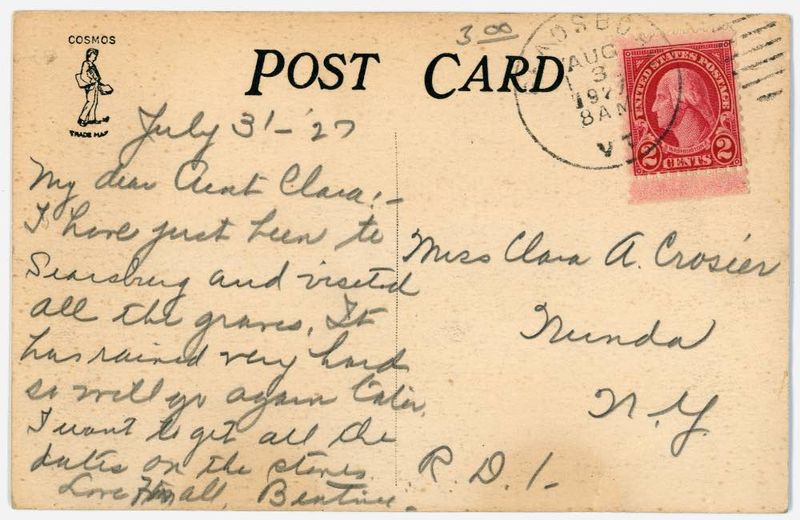 COSMOS
TRADE MARK
POST CARD
3 00
AUG
3
1927
8 AM
VT
UNITED STATES POSTAGE
WASHINGTON
2 CENTS 2
July 31 - '27
My dear Aunt Clara:-
I have just been to
Searsburg and visited
all the graves. It
has rained very hard
so will go again later.
I want to get all the
dates on the stones
Love from all, Beatrice.
Miss Clara A. Crosier
Nunda
N.Y.
R.D.1.